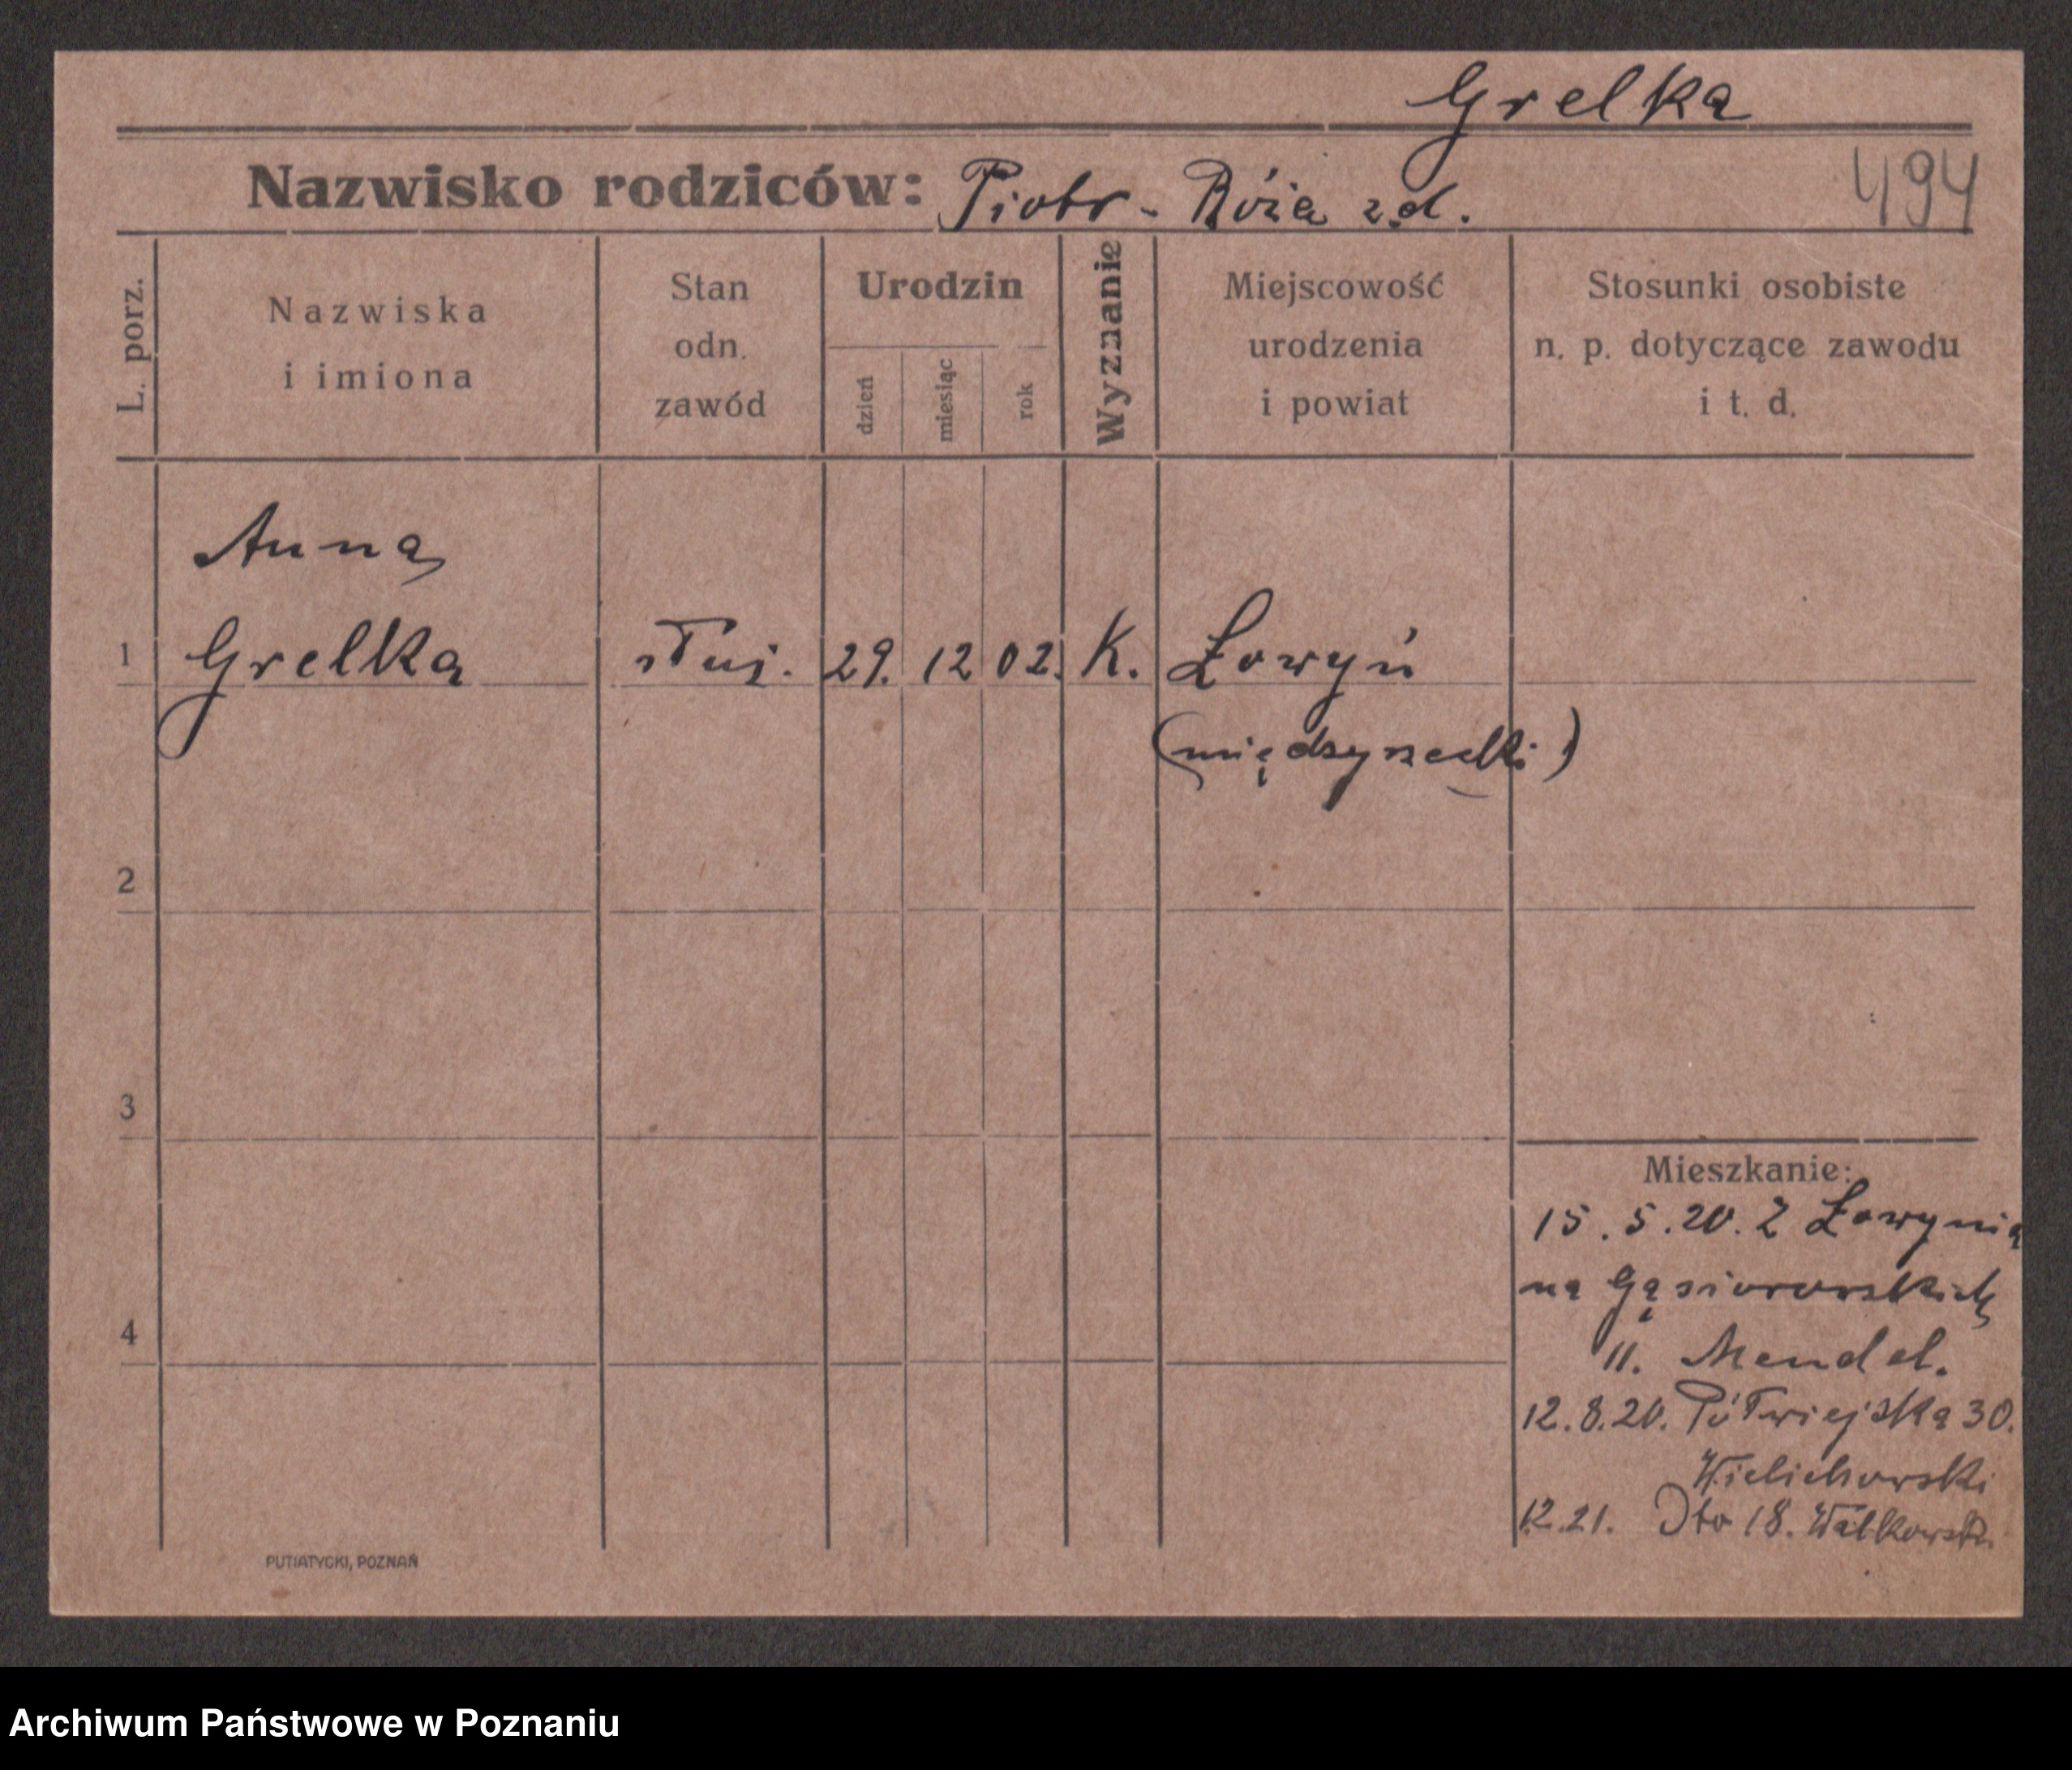 Grelka
494
Nazwisko rodziców: Piotr - Róża z.d.
L. porz.
Nazwiska
i imiona
Stan
odn.
zawód
Urodzin
dzień
miesiąc
rok
Wyznanie
Miejscowość
urodzenia
i powiat
Stosunki osobiste
n. p. dotyczące zawodu
i t. d.
Anna
1 Grelka służ. 29. 12 02. K. Łowyń
(międzyrzecki)
2
3
4
Mieszkanie:
15.5.20. Z Łowynia
na Gąsiorowskich
11. Mendel.
12.8.20. Półwiejska 30.
Wielichowski
12.21. Dto 18. Wałkowski
PUTIATYCKI, POZNAŃ
Archiwum Państwowe w Poznaniu